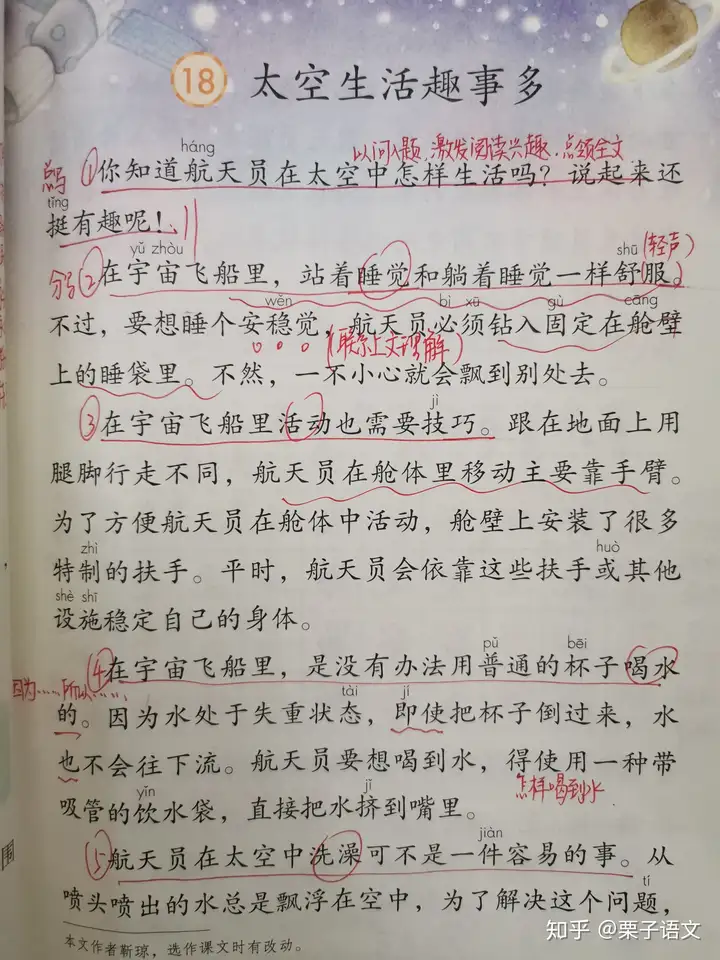 18 太空生活趣事多
háng
以问入题,激发阅读兴趣,点领全文
总写
①你知道航天员在太空中怎样生活吗?说起来还
tǐng
挺有趣呢!
yǔ zhòu shū (轻声)
分写②在宇宙飞船里,站着睡觉和躺着睡觉一样舒服。
wěn bì xū gù cāng
不过,要想睡个安稳觉,航天员必须钻入固定在舱壁
(联系上文理解)
上的睡袋里。不然,一不小心就会飘到别处去。
jì
③在宇宙飞船里活动也需要技巧。跟在地面上用
腿脚行走不同,航天员在舱体里移动主要靠手臂。
为了方便航天员在舱体中活动,舱壁上安装了很多
zhì huò
特制的扶手。平时,航天员会依靠这些扶手或其他
shè shī
设施稳定自己的身体。
pǔ bēi
④在宇宙飞船里,是没有办法用普通的杯子喝水
因为……所以……
tài jí
的。因为水处于失重状态,即使把杯子倒过来,水
也不会往下流。航天员要想喝到水,得使用一种带
yǐn jǐ 怎样喝到水
吸管的饮水袋,直接把水挤到嘴里。
jiàn
⑤航天员在太空中洗澡可不是一件容易的事。从
tí
喷头喷出的水总是飘浮在空中,为了解决这个问题,
本文作者靳琼,选作课文时有改动。
围
知乎 @栗子语文